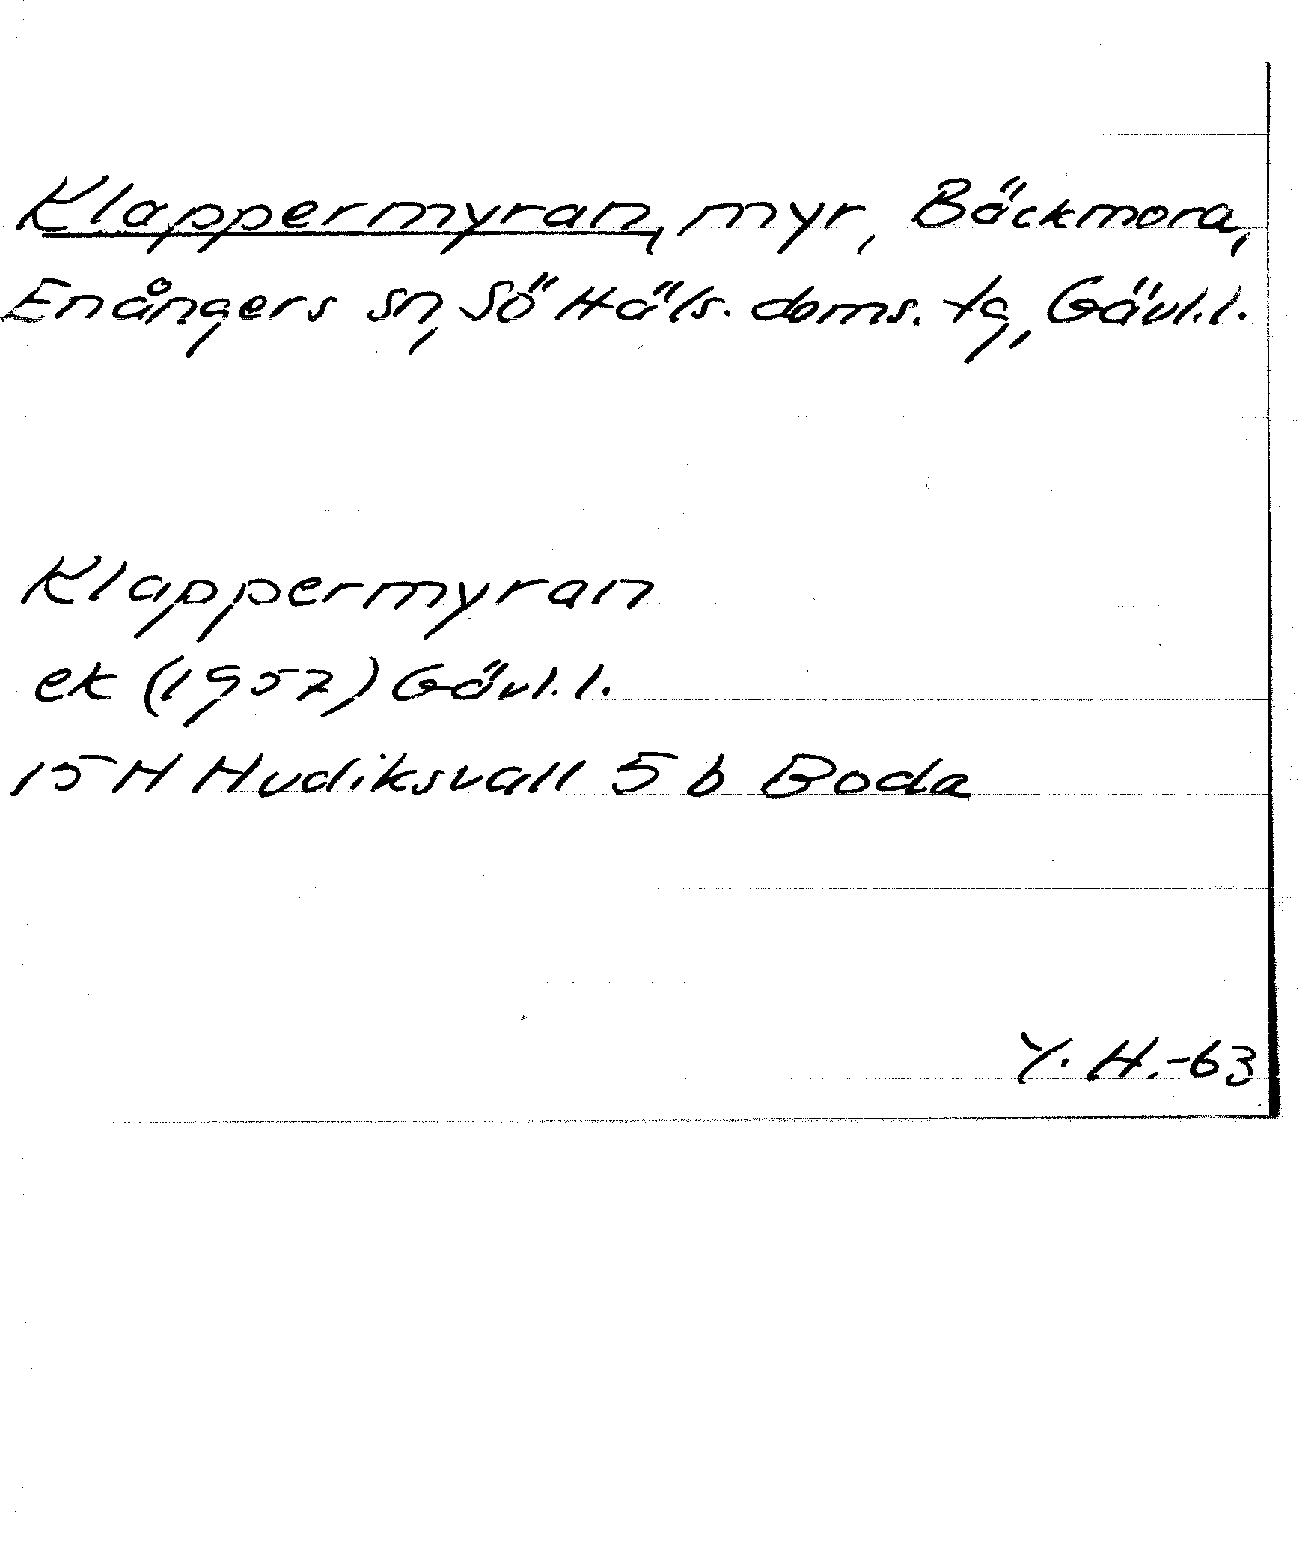 Klappermyran, myr, Bäckmora,
Enångers sn, Sö Häls. doms. tg, Gävl.l.
Klappermyran
ek (1957) Gävl.l.
15 H Hudiksvall 5 b Boda
Y. H.-63